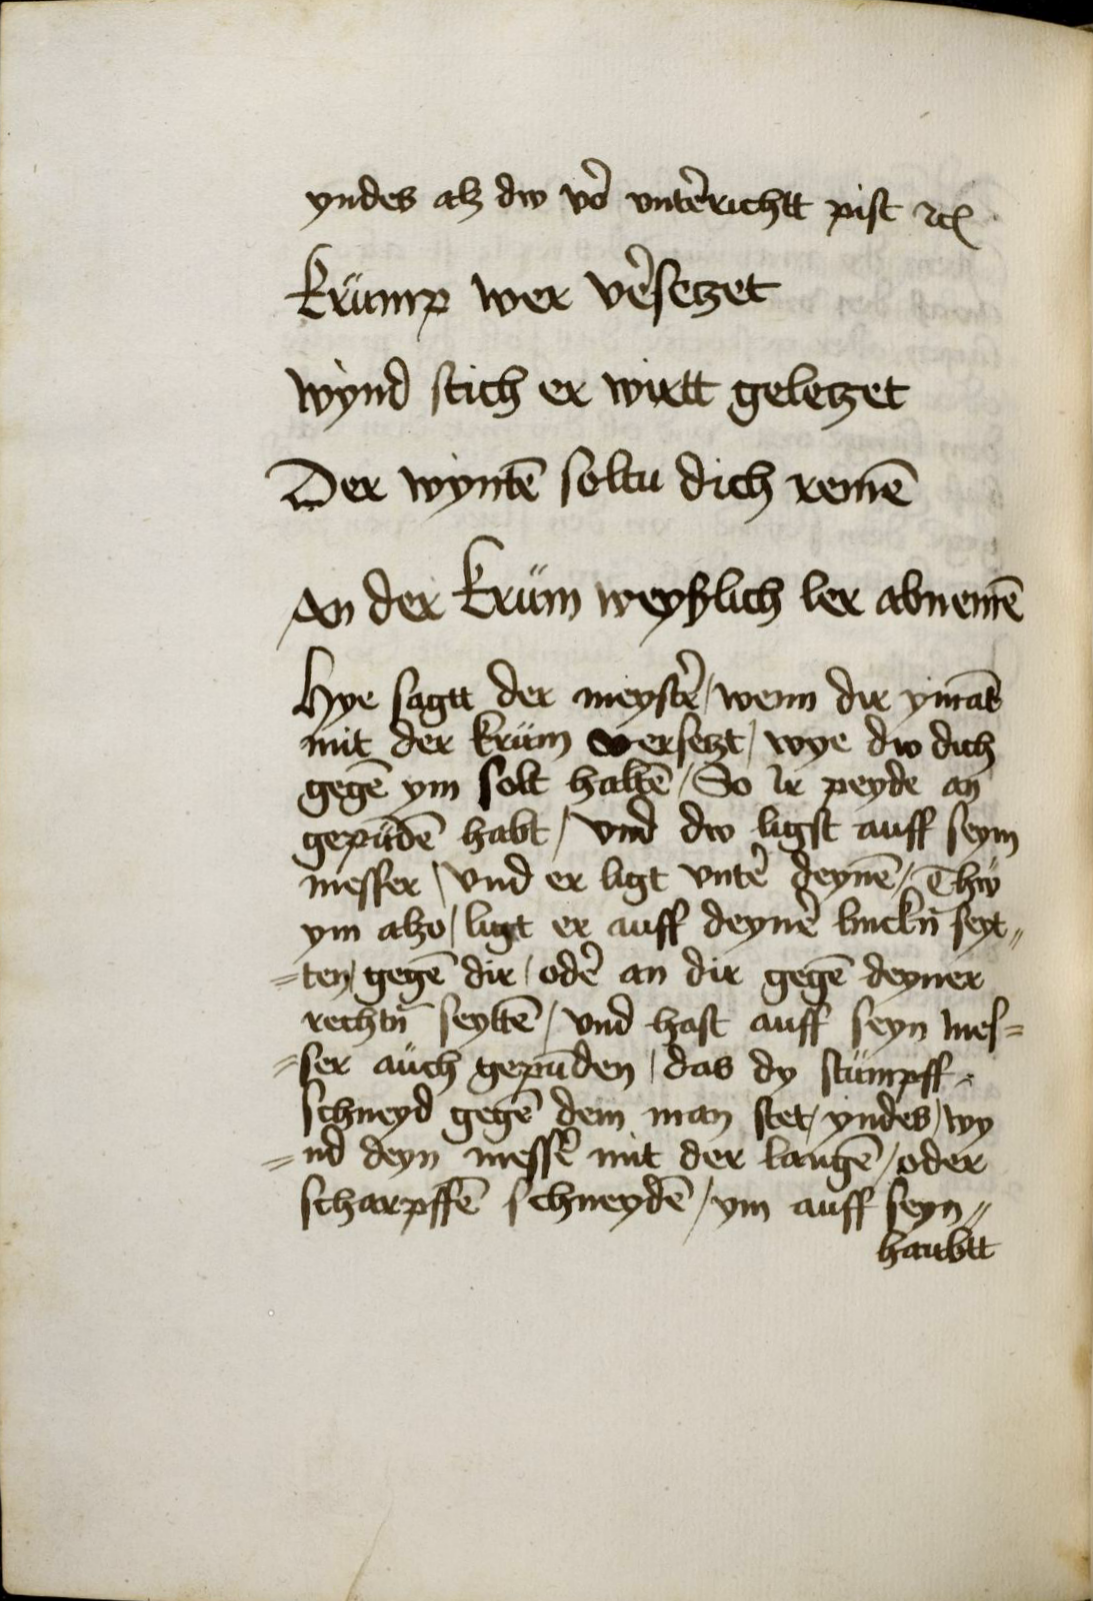 yndes alz dw võ vnterichtt pist ⁊c̃
krümp wer vẽsetzet
wynd stich er wirtt geletzet
Der wyntẽ soltu dich remẽ
An der krüm weyßlich ler abnemẽ
Hye sagtt der meystẽ / wenn dir ymãt
mit der krüm versetzt / wye dw dich
gegẽ ym solt haltẽ / So ir peyde an
gepũdẽ habt / vnd dw ligst auff seym
messer / vnd er ligt vntẽ deynẽ / Thw
ym alzo / ligt er auff deynẽ linckñ seyt„
=ten / gegẽ dir / odẽ an dir gegẽ deyner
rechtñ seyttẽ / vnd hast auff seyn mes=
=ser auch gepũden / das dy stümpff=
schneyd gegẽ dem man stet / yndes / wy
=nd deyn messẽ mit der langẽ / oder
scharpffẽ schneydẽ / ym auff seyn„
haubtt